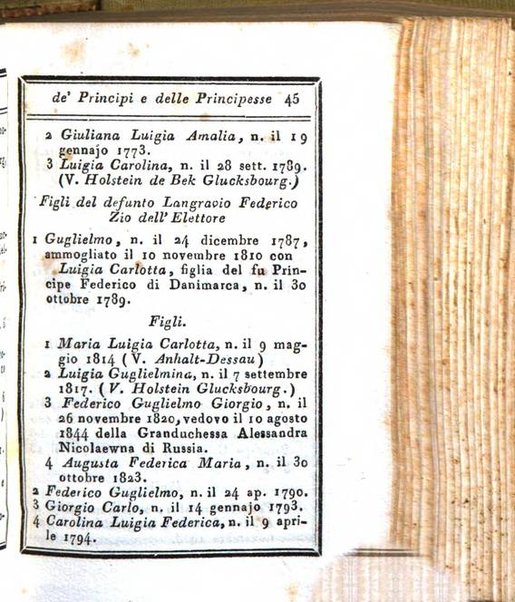 de' Principi e delle Principesse 45
2 Giuliana Luigia Amalia, n. il 19
gennajo 1773.
3 Luigia Carolina, n. il 28 sett. 1789.
(V. Holstein de Bek Glucksbourg.)
Figli del defunto Langravio Federico
Zio dell'Elettore
1 Guglielmo, n. il 24 dicembre 1787,
ammogliato il 10 novembre 1810 con
Luigia Carlotta, figlia del fu Prin-
cipe Federico di Danimarca, n. il 30
ottobre 1789.
Figli.
1 Maria Luigia Carlotta, n. il 9 mag-
gio 1814 (V. Anhalt-Dessau)
2 Luigia Guglielmina, n. il 7 settembre
1817. (V. Holstein Glucksbourg.)
3 Federico Guglielmo Giorgio, n. il
26 novembre 1820, vedovo il 10 agosto
1844 della Granduchessa Alessandra
Nicolaewna di Russia.
4 Augusta Federica Maria, n. il 30
ottobre 1823.
2 Federico Guglielmo, n. il 24 ap. 1790.
3 Giorgio Carlo, n. il 14 gennajo 1793.
4 Carolina Luigia Federica, n. il 9 apri-
le 1794.